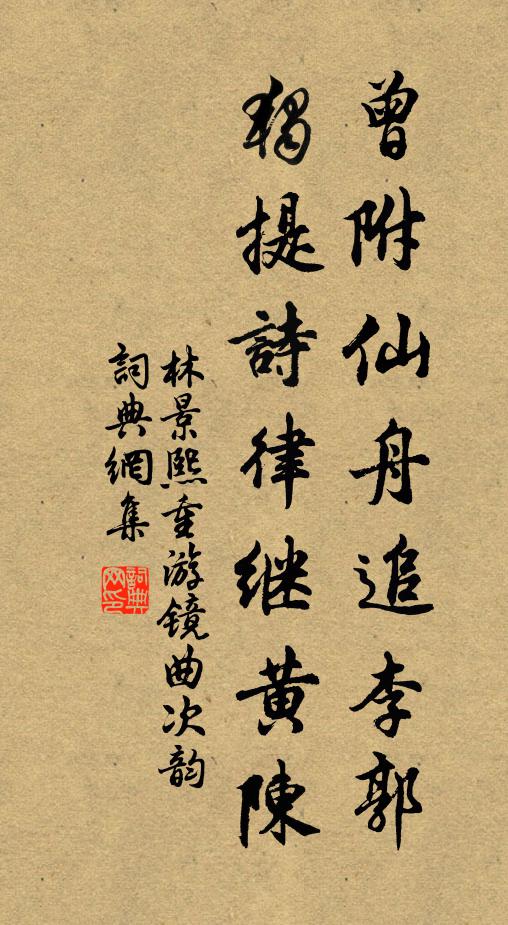 曾附仙舟追李郭
獨提詩律继黄陳
林景熙重游镜曲次韵
詞典網集
詞典网印